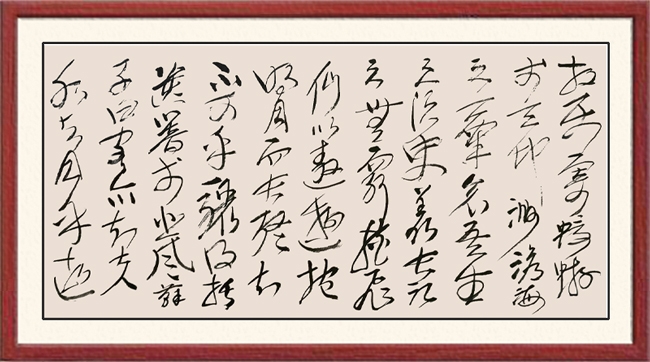 相屬寄蜉蝣
於天地渺滄海
之一粟哀吾生
之須臾羨長江
之無窮挾飛
仙以遨遊抱
明月而長終知
不可乎驟得托
遺響於悲風蘇
子曰客亦知夫
水與月乎逝